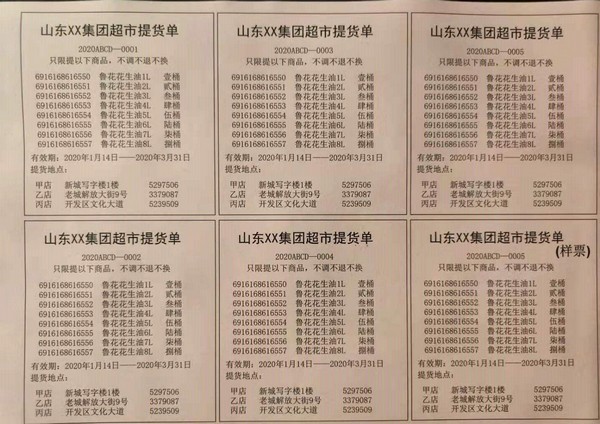 山东XX集团超市提货单
2020ABCD——0001
只限提以下商品，不调不退不换
6916168616550 鲁花花生油1L 壹桶
6916168616551 鲁花花生油2L 贰桶
6916168616552 鲁花花生油3L 叁桶
6916168616553 鲁花花生油4L 肆桶
6916168616554 鲁花花生油5L 伍桶
6916168616555 鲁花花生油6L 陆桶
6916168616556 鲁花花生油7L 柒桶
6916168616557 鲁花花生油8L 捌桶
有效期：2020年1月14日——2020年3月31日
提货地点：
甲店 新城写字楼1楼 5297506
乙店 老城解放大街9号 3379087
丙店 开发区文化大道 5239509
山东XX集团超市提货单
2020ABCD——0003
只限提以下商品，不调不退不换
6916168616550 鲁花花生油1L 壹桶
6916168616551 鲁花花生油2L 贰桶
6916168616552 鲁花花生油3L 叁桶
6916168616553 鲁花花生油4L 肆桶
6916168616554 鲁花花生油5L 伍桶
6916168616555 鲁花花生油6L 陆桶
6916168616556 鲁花花生油7L 柒桶
6916168616557 鲁花花生油8L 捌桶
有效期：2020年1月14日——2020年3月31日
提货地点：
甲店 新城写字楼1楼 5297506
乙店 老城解放大街9号 3379087
丙店 开发区文化大道 5239509
山东XX集团超市提货单
2020ABCD——0005
只限提以下商品，不调不退不换
6916168616550 鲁花花生油1L 壹桶
6916168616551 鲁花花生油2L 贰桶
6916168616552 鲁花花生油3L 叁桶
6916168616553 鲁花花生油4L 肆桶
6916168616554 鲁花花生油5L 伍桶
6916168616555 鲁花花生油6L 陆桶
6916168616556 鲁花花生油7L 柒桶
6916168616557 鲁花花生油8L 捌桶
有效期：2020年1月14日——2020年3月31日
提货地点：
甲店 新城写字楼1楼 5297506
乙店 老城解放大街9号 3379087
丙店 开发区文化大道 5239509
山东XX集团超市提货单
2020ABCD——0002
只限提以下商品，不调不退不换
6916168616550 鲁花花生油1L 壹桶
6916168616551 鲁花花生油2L 贰桶
6916168616552 鲁花花生油3L 叁桶
6916168616553 鲁花花生油4L 肆桶
6916168616554 鲁花花生油5L 伍桶
6916168616555 鲁花花生油6L 陆桶
6916168616557 鲁花花生油7L 柒桶
6916168616557 鲁花花生油8L 捌桶
有效期：2020年1月14日——2020年3月31日
提货地点：
甲店 新城写字楼1楼 5297506
乙店 老城解放大街9号 3379087
丙店 开发区文化大道 5239509
山东XX集团超市提货单
2020ABCD——0004
只限提以下商品，不调不退不换
6916168616550 鲁花花生油1L 壹桶
6916168616551 鲁花花生油2L 贰桶
6916168616552 鲁花花生油3L 叁桶
6916168616553 鲁花花生油4L 肆桶
6916168616554 鲁花花生油5L 伍桶
6916168616555 鲁花花生油6L 陆桶
6916168616556 鲁花花生油7L 柒桶
6916168616557 鲁花花生油8L 捌桶
有效期：2020年1月14日——2020年3月31日
提货地点：
甲店 新城写字楼1楼 5297506
乙店 老城解放大街9号 3379087
丙店 开发区文化大道 5239509
山东XX集团超市提货单
(样票)
2020ABCD——0005
只限提以下商品，不调不退不换
6916168616550 鲁花花生油1L 壹桶
6916168616551 鲁花花生油2L 贰桶
6916168616552 鲁花花生油3L 叁桶
6916168616553 鲁花花生油4L 肆桶
6916168616554 鲁花花生油5L 伍桶
6916168616555 鲁花花生油6L 陆桶
6916168616556 鲁花花生油7L 柒桶
6916168616557 鲁花花生油8L 捌桶
有效期：2020年1月14日——2020年3月31日
提货地点：
甲店 新城写字楼1楼 5297506
乙店 老城解放大街9号 3379087
丙店 开发区文化大道 5239509